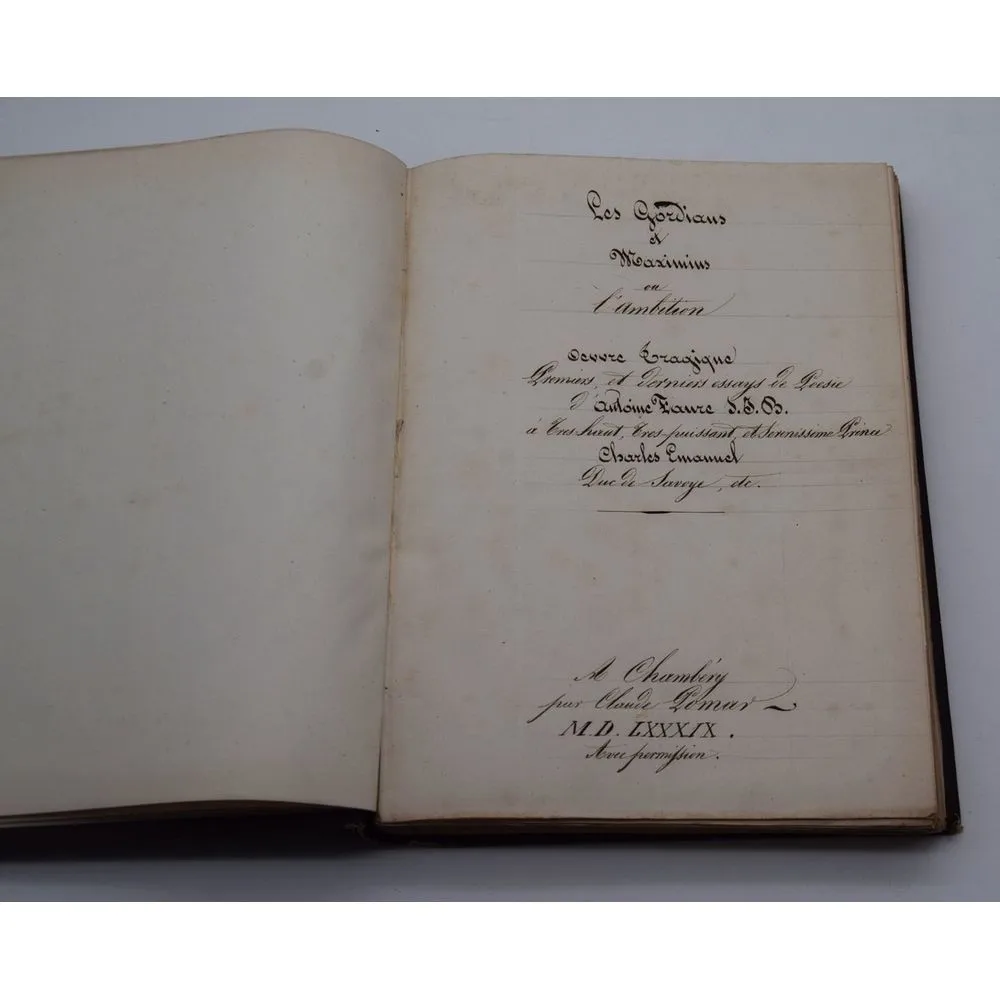 Les Gordians
et
Maximins
ou
l'ambition
Oevvre Tragique
Premiers, et derniers essays de Poesie
d'Antoine Favre J.J.B.
à Tres-haut, Tres-puissant, et Serenissime Prince
Charles Emanuel
Duc de Savoye, etc.
A Chambéry
par Claude Pomar
M.D. LXXXIX.
Avec permission.